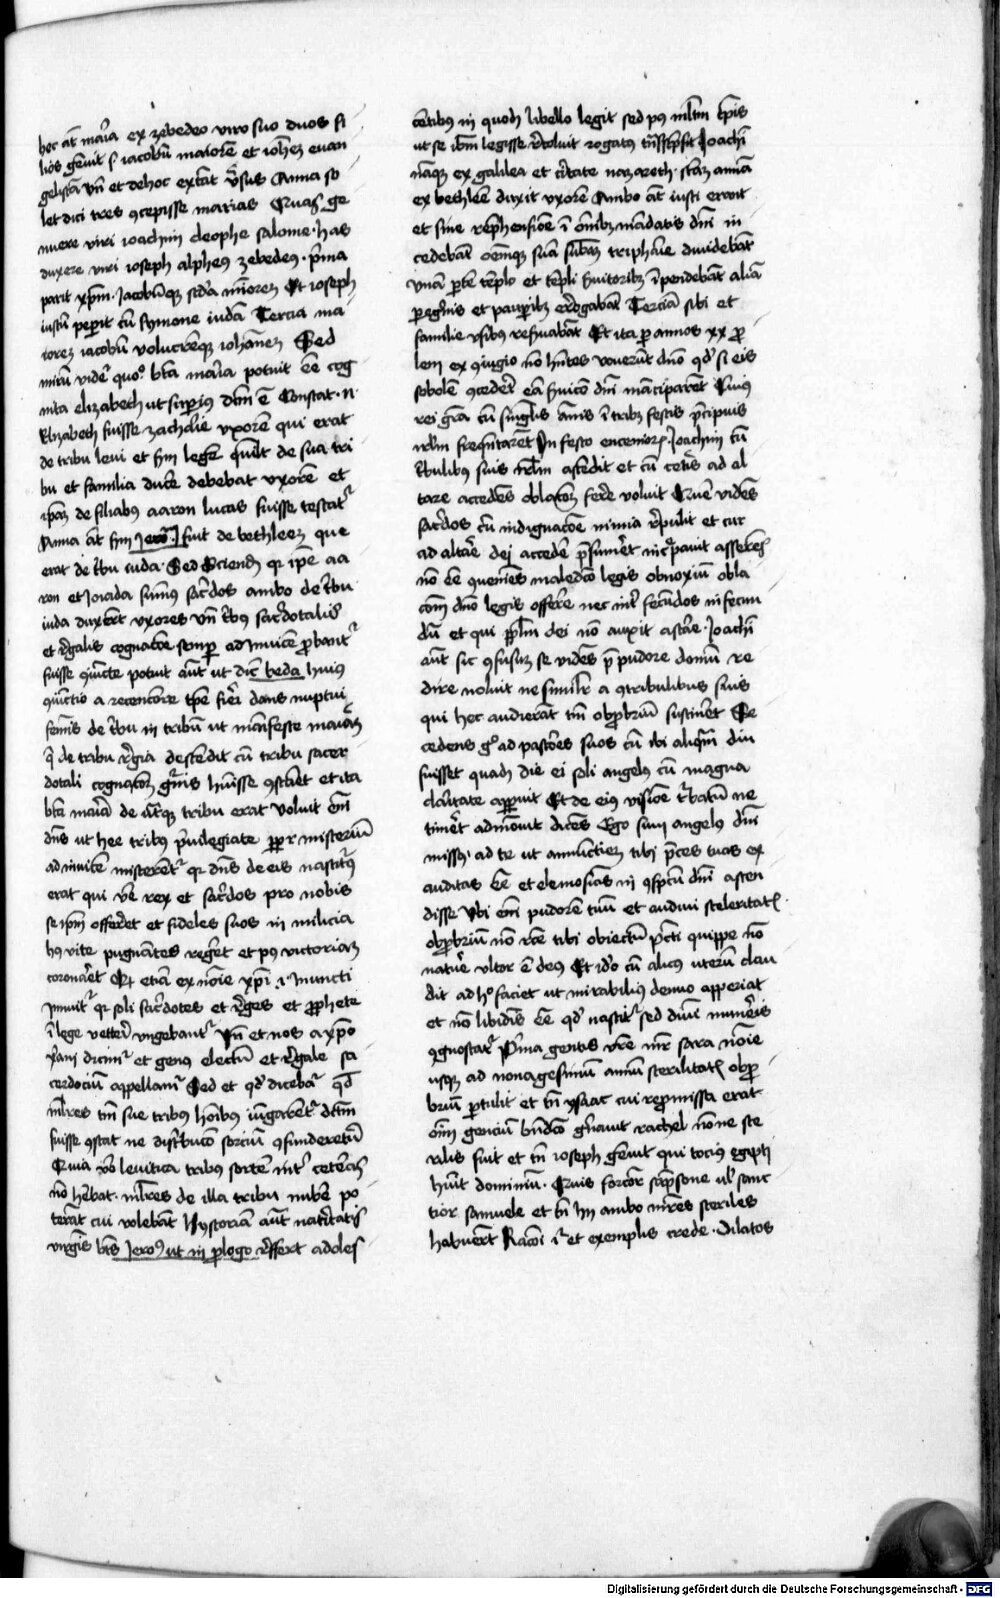 hec at maria ex zebedeo viro suo duos fi
lios genuit s iacobum maiorem et iohem euan
gelistam vn et de hoc extat versus Anna so
let dici tres concepisse marias Quas ge
nuere viri ioachim cleophe salome has
duxere viri ioseph alpheus zebedeus prima
parit xpm iacobumque scda minorem Et ioseph
iustum peperit cum symone iudam Tercia ma
iorem iacobum volucremque iohannem Sed
mirum videtur quo bta maria potuit esse cog
nata elizabeth ut superius dcm est Constat n
Elyzabeth fuisse zacharie vxorem qui erat
de tribu leui et scdm legem quilibet de sua tri
bu et familia ducere debebat vxorem et
ipam de filiabus aaron lucas fuisse testatur
Anna at scdm Jero fuit de bethleem que
erat de tribu iuda Sed Sciendum quod ipe aa
ron et Joiada summus sacerdos ambo de tribu
iuda duxerunt vxores vn tribus sacerdotalis
et regalis cognacone semper ad inuicem probantur
fuisse coniuncte potuit autem ut dicit beda huius
coniunctio a recenciore tpe fieri dans nuptui
feminis de tribu in tribum ut manifeste mariam
que de tribu regia descendit cum tribu sacer
dotali cognacionem generis habuisse constaret et ita
bta maria de utraque tribu erat voluit enim
dns ut hee tribus priuilegiate propter misterium
ad inuicem misterentur quod dns de eis nasciturus
erat qui vere rex et sacerdos pro nobis
se ipm offerret et fideles suos in milicia
huius vite pugnantes regeret et post victoriam
coronaret Quod etiam ex nomine xpi i vncti
innuitur quod soli sacerdotes et reges et prophete
in lege veteri vngebantur Vn et nos a xpo
xpani dicimur et genus electum et regale sa
cerdocium appellamur Sed et quod dicebatur quod
mulieres tantum sue tribus hominibus iungerentur dictum
fuisse constat ne distribucio sorcium confunderetur
Quia vero leuitica tribus sortem inter ceteras
non habebat mulieres de illa tribu nubere po
terant cui volebant Hystoriam autem natiuitatis
virginis btus Jeronimus ut in prologo refert adoles
centibus in quodam libello legit sed post multum tempus
ut se ibm legisse recoluit rogatus transscripsit Joachim
namque ex galilea et ciuitate nazareth sctam annam
ex bethleem duxit vxorem Ambo at iusti erant
et sine reprehensione in omnibus mandatis dni in
cedebant oemque suam substanciam tripharie diuidebant
vnam partem templo et templi seruitoribus impendebant aliam
peregrinis et pauperibus erogabant Terciam sibi et
familie vsibus reseruabant Et ita per annos xx pro
lem ex coniugio non habentes vouerunt dno quod si eis
sobolem concederet eam seruicio dni manciparent Cuius
rei gracia cum singulis annis in tribus festis precipuis
irlm frequentarent In festo enceniorum Joachim cum
tribulibus suis irlm ascendit et cum ceteris ad al
tare accedens oblacionem suam ferre voluit Quem videns
sacerdos cum indignacone nimia repulit et cur
ad altare dei accedere presumeret increpauit asserens
non esse conueniens maledicto legis obnoxium obla
cionem dno legis offerre nec inter fecundos infecun
dum et qui populum dei non auxit astare Joachim
autem sic confusum se videns pre pudore domum re
dire noluit ne similiter a contribulibus suis
qui hec audierant tantum obprobrium sustineret Se
cedens ergo ad pastores suos cum ibi aliquamdiu
fuisset quadam die ei soli angelus cum magna
claritate apparuit Et de eius visione turbatum ne
timeret admonuit dicens Ego sum angelus dni
missus ad te ut annunciem tibi preces tuas ex
auditas esse et elemosinas in conspectu dni ascen
disse Vidi enim pudorem tuum et audiui sterilitatis
obprobrium non recte tibi obiectum peccati quippe non
nature vltor est deus Et ideo cum alicuius uterum clau
dit ad hoc facit ut mirabilius denuo apperiat
et non libidinis esse quod nascitur sed diuini muneris
cognoscatur Prima gentis vestre mater sara nonne
usque ad nonagesimum annum sterilitatis obpro
brium pertulit et tamen ysaac cui repromissa erat
omnium gencium benedictio generauit rachel nonne ste
rilis fuit et tamen ioseph genuit qui tocius egipti
habuit dominium Quis forcior sampsone uel sanc
tior samuele et tamen hii ambo matres steriles
habuerunt Racioni i et exemplis crede Dilatos
Digitalisierung gefördert durch die Deutsche Forschungsgemeinschaft - DFG